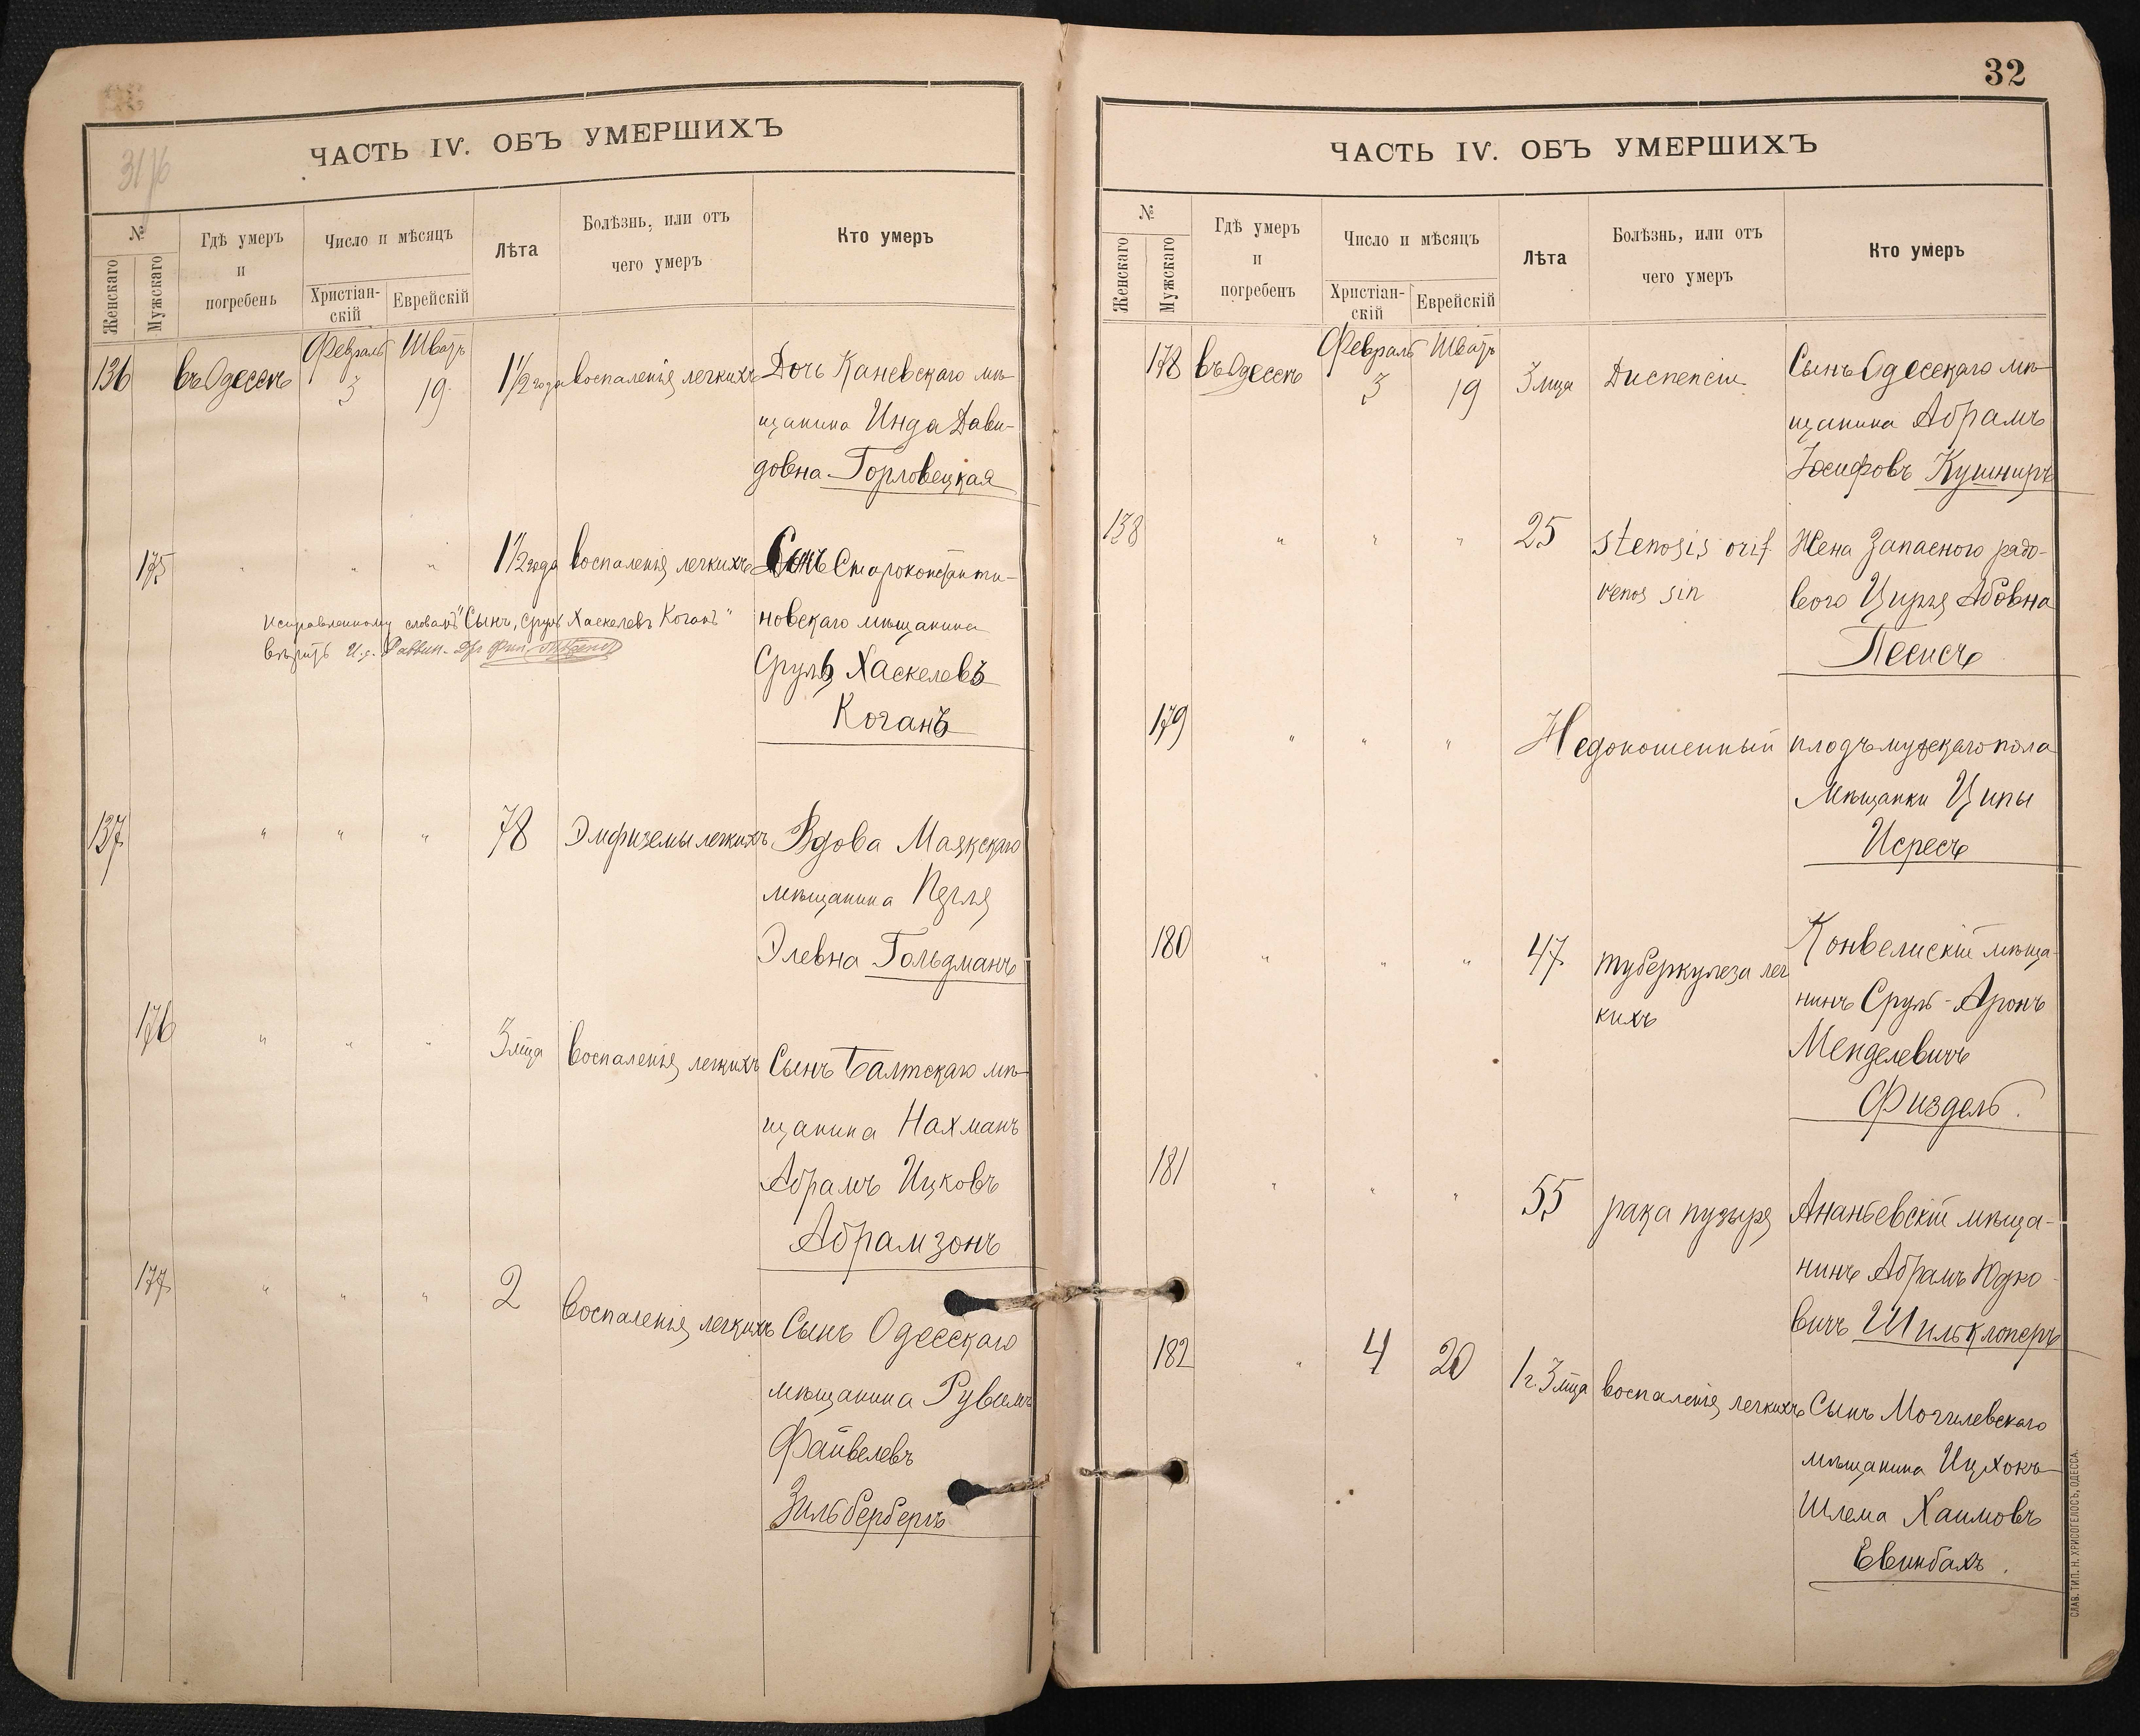 31/6
ЧАСТЬ IV. ОБЪ УМЕРШИХЪ
№
Женскаго
Мужскаго
Гдѣ умеръ
и
погребенъ
Число и мѣсяцъ
Христіан-
скій
Еврейскій
Лѣта
Болѣзнь, или отъ
чего умеръ
Кто умеръ
136 въ Одессѣ Февраль 3 Шватъ 19 1½ года воспаленія легкихъ Дочь Каневскаго мѣ-
щанина Инда Дави-
довна Горловецкая
175 " " " 1½ года воспаленія легкихъ Сынъ Староконстанти-
новскаго мѣщанина
Сруль Хаскелевъ
Коганъ
Исправленному словамъ "Сынъ, Сруль Хаскелевъ Коганъ"
вѣрить И.д. Раввин.
137 " " " 78 Эмфиземы легкихъ Вдова Маякскаго
мѣщанина Перля
Элевна Гольдманъ
176 " " " 3 мѣца воспаленія легкихъ Сынъ Балтскаго мѣ-
щанина Нахманъ
Абрамъ Ицковъ
Абрамзонъ
177 " " " 2 воспаленія легкихъ Сынъ Одесскаго
мѣщанина Рувимъ
Файвелевъ
Зильбербергъ
32
ЧАСТЬ IV. ОБЪ УМЕРШИХЪ
№
Женскаго
Мужскаго
Гдѣ умеръ
и
погребенъ
Число и мѣсяцъ
Христіан-
скій
Еврейскій
Лѣта
Болѣзнь, или отъ
чего умеръ
Кто умеръ
178 въ Одессѣ Февраль 3 Шватъ 19 3 мца Диспепсіи Сынъ Одесскаго мѣ-
щанина Абрамъ
Іосифовъ Кушниръ
138 " " " 25 stenosis orif Жена Запаснаго рядо-
venos sin вого Цирля Абовна
Песисъ
179 " " " Недоношенный плодъ мужскаго пола
мѣщанки Ципы
Исресъ
180 " " " 47 туберкулеза лег Конвелискій мѣща-
кихъ нинъ Сруль-Аронъ
Менделевичъ
Физдель.
181 " " " 55 рака пузыря Ананьевскій мѣща-
нинъ Абрамъ Юдко-
вичъ Шильклоперъ
182 " 4 20 1 г. 3 мца воспаленія легкихъ Сынъ Могилевскаго
мѣщанина Ицхокъ
Шлема Хаимовъ
Евинбахъ.
СЛАВ. ТИП. Н. ХРИСОГЕЛОСЪ, ОДЕССА.